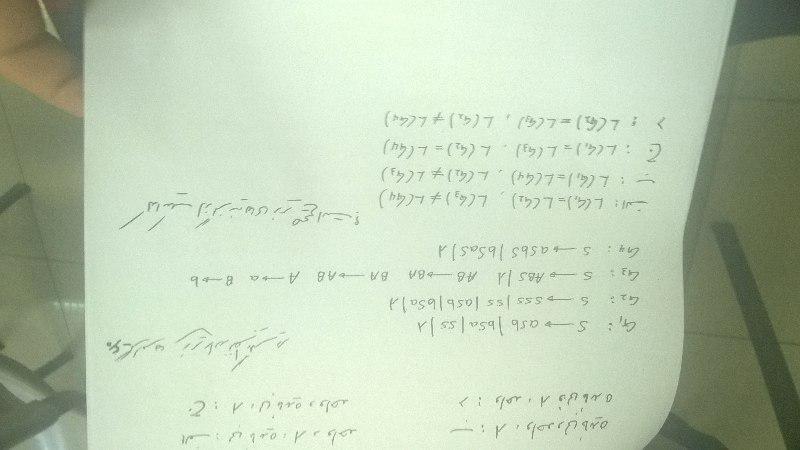 الف: بی فایده، λ و واحد
ب: λ، واحد و بی فایده
ج: λ، بی فایده و واحد
د: واحد، λ و بی فایده
۶۰- گرامرهای زیر را در نظر بگیرید
G₁: S → aSb | bSa | SS | λ
G₂: S → SSS | SS | aSb | bSa | λ
G₃: S → ABS | λ AB → BA BA → AB A → a B → b
G₄: S → aSbS | bSaS | λ
کدامیک از گزینه های زیر صحیح است؟
الف: L(G₁) = L(G₂) , L(G₃) ≠ L(G₄)
ب: L(G₁) = L(G₄) , L(G₂) ≠ L(G₃)
ج: L(G₁) = L(G₃) , L(G₂) = L(G₄)
د: L(G₂) = L(G₃) , L(G₂) ≠ L(G₄)